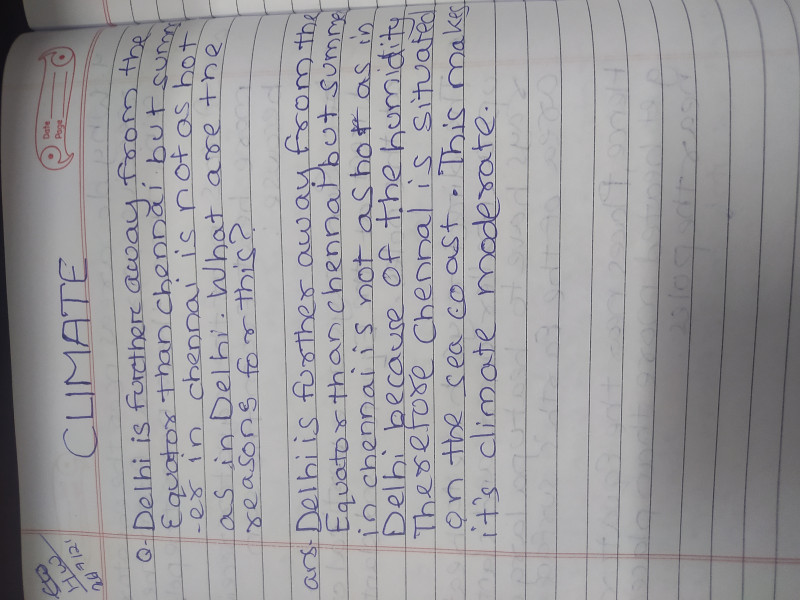 Date
Page
CLIMATE
Q- Delhi is further away from the
Equator than chennai but summ
-er in chennai is not as hot
as in Delhi. What are the
reasons for this?
ans- Delhi is further away from the
Equator than chennai but summe
in chennai is not as hot as in
Delhi because of the humidity
Therefore Chennai is situated
on the sea coast. This makes
it's climate moderate.